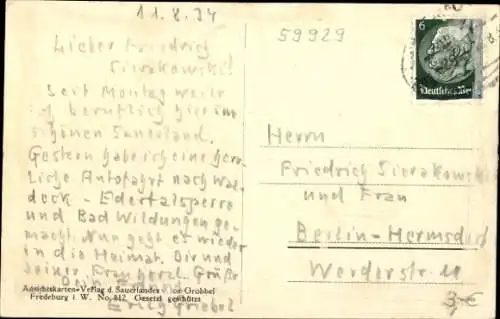 11.8.34
59929
Lieber Friedrich
Sierakowski!
Seit Montag weile
ich beruflich hier im
schönen Sauerland.
Gestern habe ich eine herr-
liche Autofahrt nach Wal-
deck - Edertalsperre
und Bad Wildungen ge-
macht. Nun geht es wieder
in die Heimat. Dir und
Deiner Frau herzl. Grüße
Dein
Erich Griebel
Ansichtskarten-Verlag d. Sauerlandes Grobbel
Fredeburg i. W. No. 812. Gesetzl. geschützt
6
Deutsches Reich
Herrn
Friedrich Sierakowski
und Frau
Berlin-Hermsdorf
Werderstr. 11
3,-€